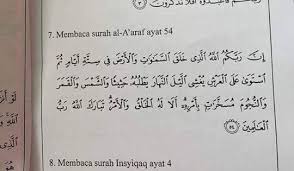 رَبُّكُمْ فَاعْبُدُوهُ أَفَلَا تَذَكَّرُونَ
7. Membaca surah al-A'araf ayat 54
إِنَّ رَبَّكُمُ اللَّهُ الَّذِي خَلَقَ السَّمَوَاتِ وَالْأَرْضَ فِي سِتَّةِ أَيَّامٍ ثُمَّ
اسْتَوَى عَلَى الْعَرْشِ يُغْشِي اللَّيْلَ النَّهَارَ يَطْلُبُهُ حَثِيثًا وَالشَّمْسَ وَالْقَمَرَ
وَالنُّجُومَ مُسَخَّرَاتٍ بِأَمْرِهِ أَلَا لَهُ الْخَلْقُ وَالْأَمْرُ تَبَارَكَ اللَّهُ رَبُّ
الْعَالَمِينَ ﴿٥٤﴾
8. Membaca surah Insyiqaq ayat 4